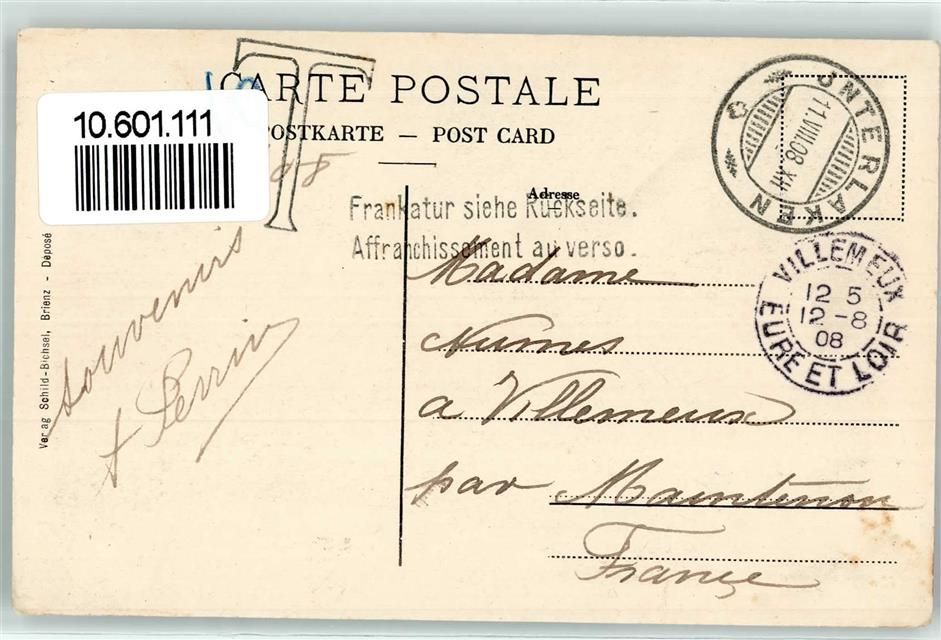 CARTE POSTALE
10.601.111
POSTKARTE — POST CARD
T
08
Adresse
Frankatur siehe Rückseite.
Affranchissement au verso.
UNTERLAKEN
11.VIII.08.XII
VILLEMEUX
12 5
12-8
08
EURE ET LOIR
Souvenirs
Perrin
Madame
Numes
a Villemeux
par Maintenon
France
Verlag Schild-Bichsel, Brienz - Déposé